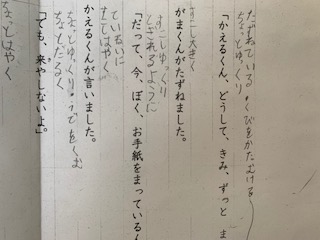 たずねている くびをかたむける
ちょっとゆっくり
「かえるくん、どうして、きみ、ずっと ま
すこし大きく
がまくんがたずねました。
すこしゆっくり
とぎれるように
「だって、今、ぼく、お手紙をまっているん
ていねいに
かえるくんが言いました。
ちょっとゆっくり うでをくむ
ちょっとだるく
「でも、来やしないよ。」
ちょっとはやく